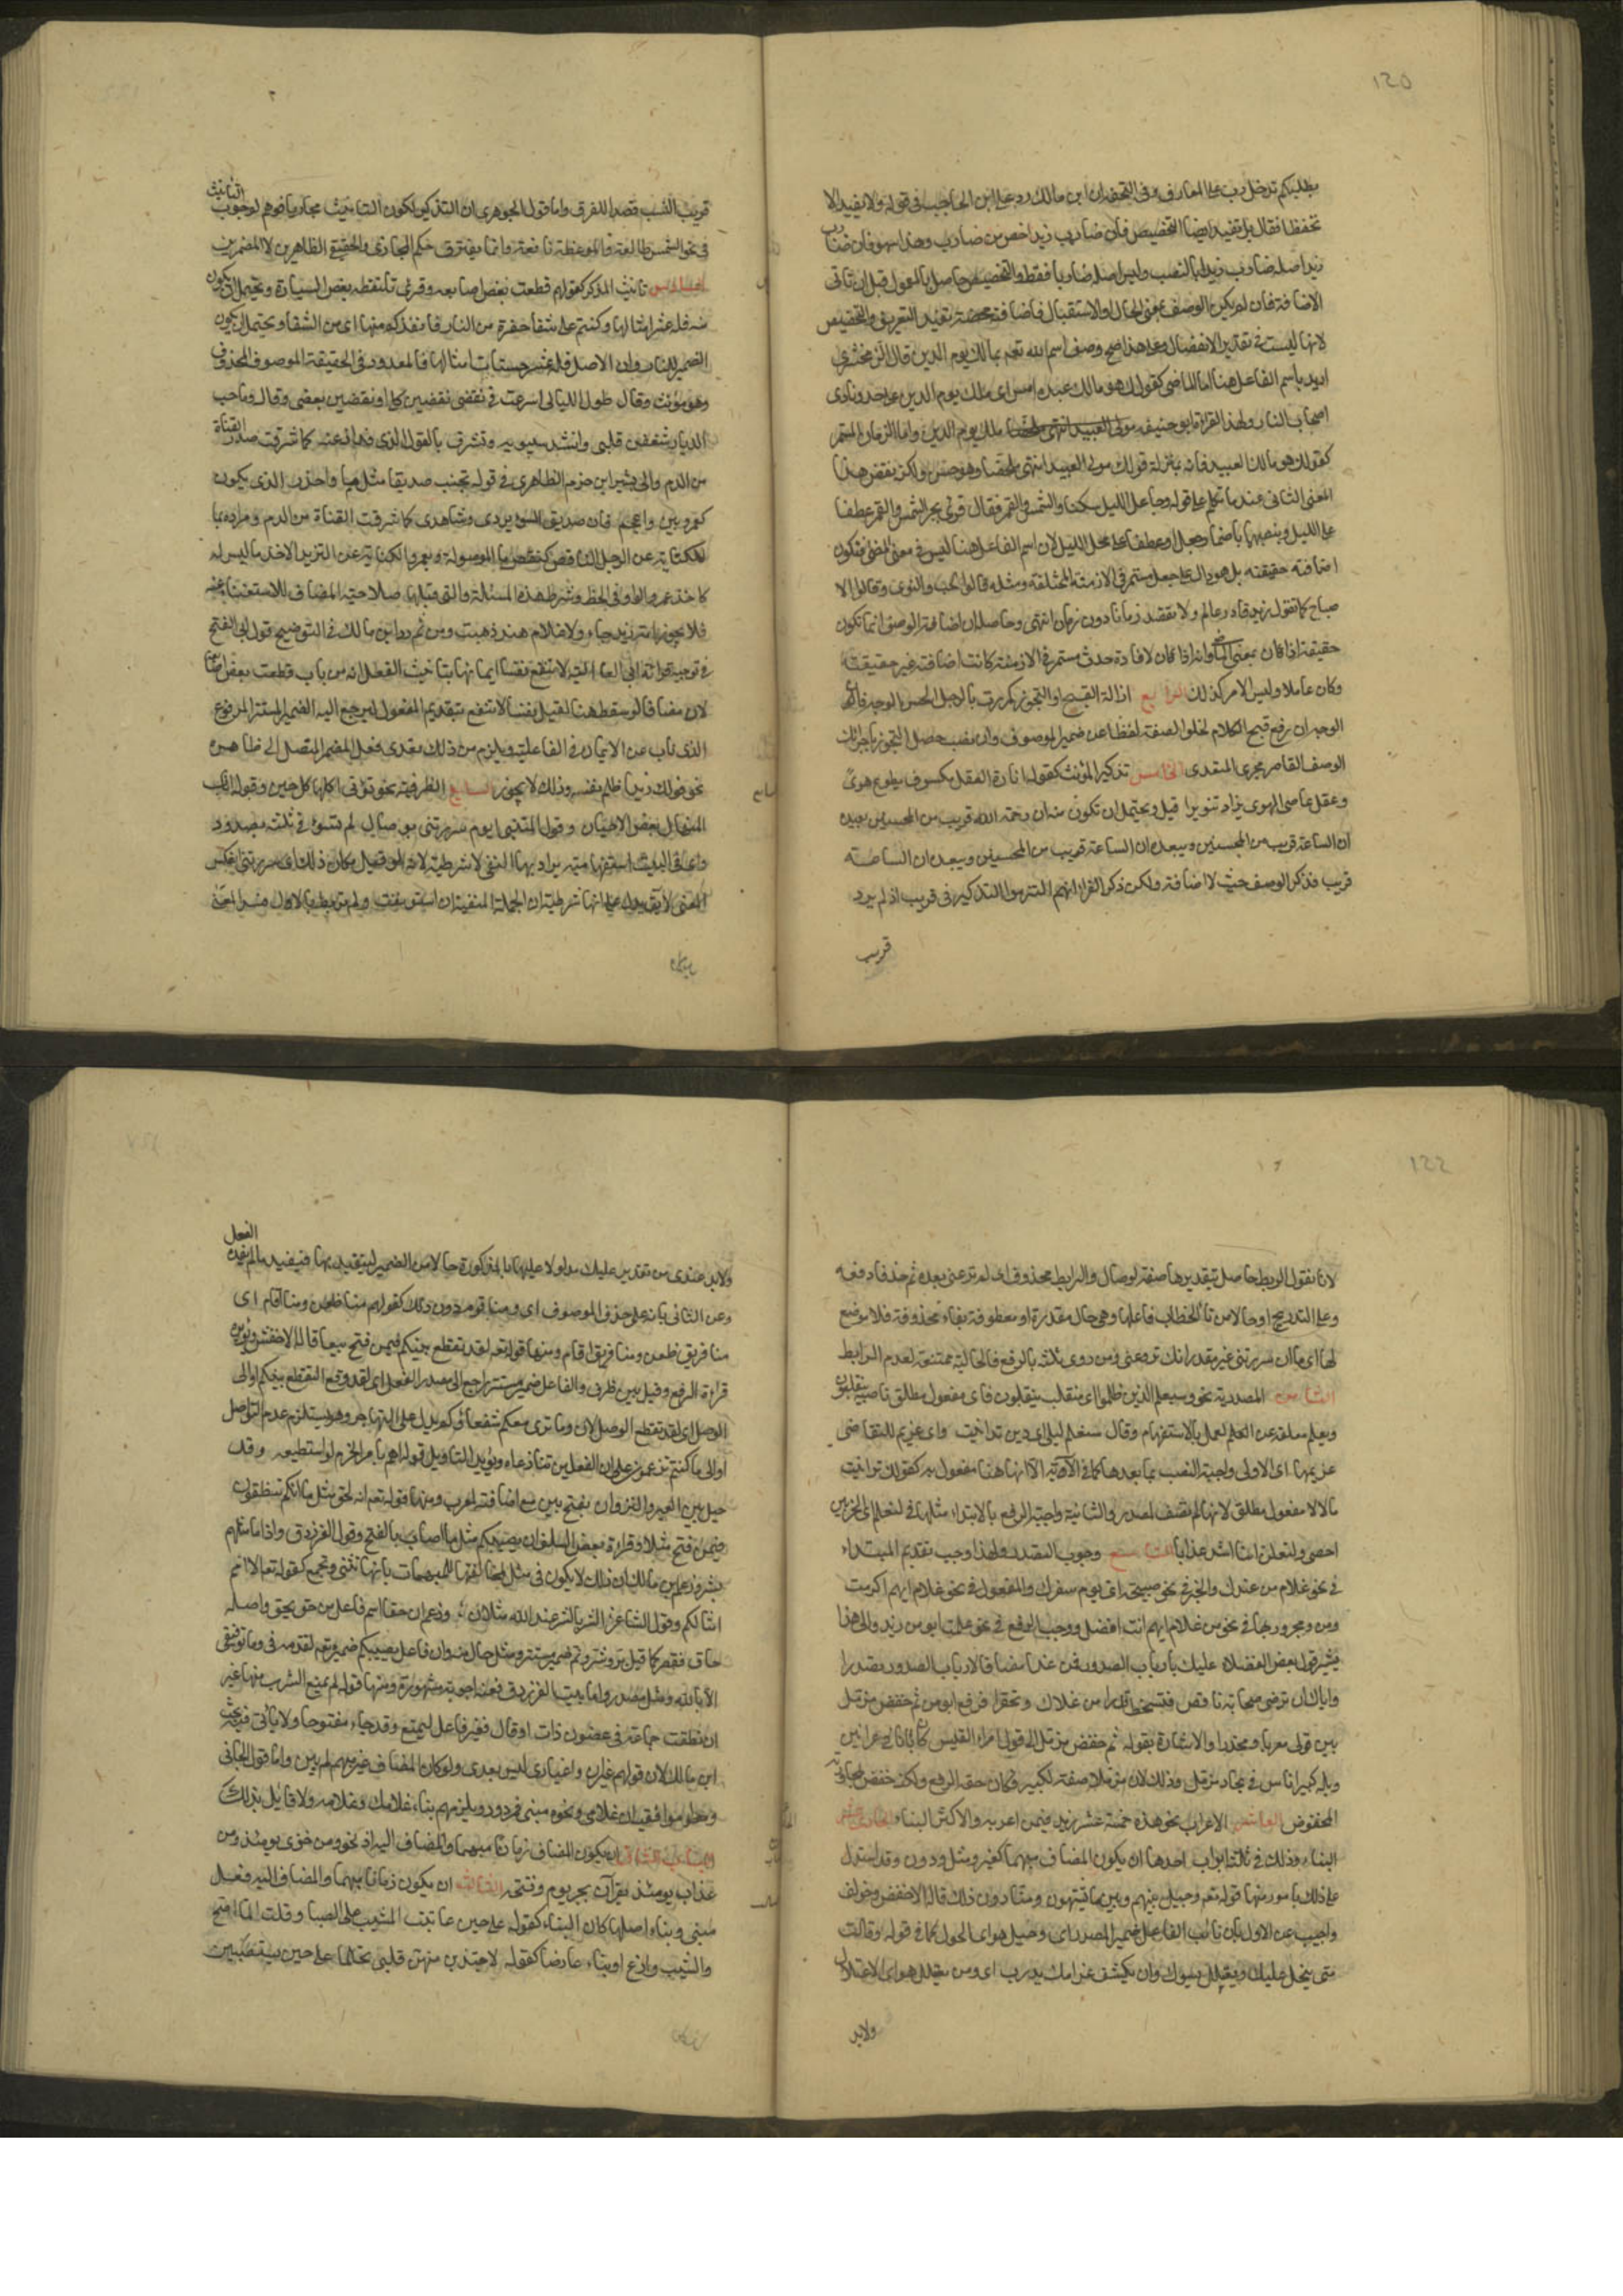 ١٢٥
تحفظا فقال بل تفيد ايضا التخصيص فان ضارب زيد اخص من ضارب وهذا سهو فان ضارب
زيد اصله ضارب زيدا بالنصب وليس اصله ضاربا فقط والتخصيص حاصل بالمعمول قبل ان تاتى
الاضافة فان لم يكن الوصف بمعنى الحال والاستقبال فاضافته محضة تفيد التعريف والتخصيص
لانها ليست فى تقدير الانفصال وعلى هذا صح وصف اسم الله تعم بمالك يوم الدين قال الزمخشرى
اريد باسم الفاعل هنا اما الماضى كقولك هو مالك عبده امس اى ملك يوم الدين على حد ونادى
اصحاب النار ولهذا قرا ابو حنيفه ملك يوم الدين واما الزمان المستمر
كقولك هو مالك العبيد فانه بمنزلة قولك مولى العبيد انتهى ملخصا وهو حسن ولكن نقض هذا
المعنى الثانى عند ما تكلم على قوله وجاعل الليل سكنا والشمس والقمر فقال قرئ بجر الشمس والقمر عطفا
على الليل وبنصبهما باضمار جعل او عطفا على محل الليل لان اسم الفاعل هنا ليس فى معنى المضى فتكون
اضافته حقيقته بل هو دال على جعل مستمر فى الازمنة المختلفة ومثله فالق الحب والنوى وفالق الا
صباح كما تقول زيد قادر عالم ولا تقصد زمانا دون زمان انتهى وحاصله ان اضافة الوصف انما تكون
حقيقة اذا كان بمعنى الماضى وانه اذا كان لافادة حدث مستمر فى الازمنة كانت اضافته غير حقيقته
وكان عاملا وليس الامر كذلك الرابع ازالة القبح او التجوز كمررت بالرجل الحسن الوجه فان
الوجه ان رفع قبح الكلام لخلو الصفة لفظا عن ضمير الموصوف وان نصب حصل التجوز باجرائك
الوصف القاصر مجرى المتعدى الخامس تذكير المؤنث كقوله انارة العقل مكسوف بطوع هوى
وعقل عاصى الهوى يزداد تنويرا قيل ويحتمل ان تكون منه ان رحمة الله قريب من المحسنين ويبعده
ان الساعة قريب من المحسنين ويبعد ان الساعة
قريب فذكر الوصف حيث لا اضافة ولكن ذكر الفراء انهم التزموا التذكير فى قريب اذ لم يرد
قريب
التانيث
قريب النسب قصدا للفرق واما قول الجوهرى ان التذكير لكون التانيث مجازيا فوهم لوجوب
فى نحو الشمس طالعة والموعظة نافعة وانما يفترق حكم المجازى والحقيقى الظاهرين لا المضمرين
السادس تانيث المذكر كقولهم قطعت بعض اصابعه وقرئ تلتقطه بعض السيارة ويحتمل ان يكون
منه فله عشر امثالها وكنتم على شفا حفرة من النار فانقذكم منها اى من الشفا ويحتمل ان يكون
الضمير للنار وان الاصل فله عشر حسنات امثالها فالمعدود فى الحقيقة الموصوف المحذوف
وهو مؤنث وقال طول الليالى اسرعت فى نقضى نقضن كلى ونقضن بعضى وقال وما حب
الديار شغفن قلبى وانشد سيبويه وتشرق بالقول الذى قد اذعته كما شرقت صدر القناة
من الدم والى هذا يشير ابن حزم الظاهرى فى قوله تجنب صديقا مثل ما واحذر الذى يكون
كعمرو بين واعجم فان صديق السوء يردى وشاهدى كما شرقت القناة من الدم ومراده بما
الكناية عن الرجل الناقص كنقص ما الموصولة وبعمرو الكناية عن المتزيد الاخذ ما ليس له
كاخذ عمرو الواو فى الخط وشرط هذه المسئلة والتى قبلها صلاحية المضاف للاستغناء عنه
فلا يجوز امة زيد جاء ولا غلام هند ذهبت ومن ثم رد ابن مالك فى التوضيح قول ابى الفتح
فى توجيه قراءة ابى العالية لا تنفع نفسا ايمانها بتانيث الفعل انه من باب قطعت بعض اصا
لان المضاف لو سقط هنا لقيل نفسا لا تنفع بتقديم المفعول ليرجع اليه الضمير المستتر المرفوع
الذى ناب عن الايمان فى الفاعلية ويلزم من ذلك تعدى فعل المضمر المتصل الى ظاهره
نحو قولك زيدا ظلم نفسه وذلك لا يجوز السابع الظرفية نحو تؤتى اكلها كل حين وقوله انا ابو
المنهال بعض الاحيان وقول المتنبى اى يوم سررتنى بوصال لم تسؤنى ثلثة بصدود
واى فى البيت استفهامية يراد بها النفى لا شرطية لانه لو قيل مكان ذلك ان سررتنى انعكس
المعنى لا يق يدل على انها شرطية ان الجملة المنفية ان استؤنفت ولم تربط بالاول فسد المعنى
١٢٢
لانا نقول الربط حاصل بتقديرها صفة لوصال والرابط محذوف اى لم ترعنى بعده ثم حذفا دفعة
وعلى التدريج او حالا من تاء الخطاب فاعلها وهى حال مقدرة او معطوفة بفاء محذوفة فلا موضع
لها اى ما ان سررتنى غير مقدر انك تروعنى ومن روى ثلثه بالرفع فالحالية ممتنعة لعدم الرابط
الثامن المصدرية نحو وسيعلم الذين ظلموا اى منقلب ينقلبون فاى مفعول مطلق ناصبه ينقلبون
ويعلم معلقة عن العلم لعمل الاستفهام وقال ستعلم ليلى اى دين تداينت واى غريم للتقاضى
غريمها اى الاولى واجبة النصب بما بعدها كما فى الاية الا انها هنا مفعول به كقولك تداينت
مالا لا مفعول مطلق لانها لم تضف لمصدر والثانية واجبة الرفع بالابتداء مثلها فى لنعلم اى الحزبين
احصى ولتعلمن اينا اشد عذابا التاسع وجوب التصدر ولهذا وجب تقديم المبتداء
فى نحو غلام من عندك والخبر فى نحو صبيحة اى يوم سفرك والمفعول فى نحو غلام ايهم اكرمت
ومن ومجرورها فى نحو من غلام ايهم انت افضل ووجب الرفع فى نحو علمت ابو من زيد والى هذا
يشير قول بعض الفضلاء عليك بارباب الصدور فمن غدا مضافا لارباب الصدور تصدرا
واياك ان ترضى صحابة ناقص فتنحط قدرا من علاك وتحقرا فرفع ابو من ثم خفض مزمل
يبين قولى مغريا ومحذرا والاشارة بقوله ثم خفض مزمل الى قول امراء القيس كان ابانا فى عرانين
وبله كبير اناس فى بجاد مزمل وذلك لان مزملا صفة لكبير فكان حقه الرفع ولكنه خفض لمجاورته
المخفوض العاشر الاعراب نحو هذه خمسة عشر زيد فيمن اعربه والاكثر البناء الحادى عشر
البناء وذلك فى ثلثة ابواب احدها ان يكون المضاف مبهما كغير ومثل ودون وقد استدل
على ذلك بامور منها قوله تعم وحيل بينهم وبين ما يشتهون ومنا دون ذلك قاله الاخفش وخولف
واجيب عن الاول بان نائب الفاعل ضمير المصدر اى وحيل هو اى الحول كما فى قوله وقالت
متى يبخل عليك ويعتلل يسؤك وان يكشف غرامك تدرب اى ومن يعتلل هو اى الاعتلال
ولابد
الفعل
ولابد عندى من تقدير عليك مدلولا عليها بالمذكورة حالا من الضمير ليتقيد بها فيفيد ما لم يفده
وعن الثانى بانه على حذف الموصوف اى ومنا قوم دون ذلك كقولهم منا ظعن ومنا اقام اى
منا فريق ظعن ومنا فريق اقام ومنها قوله تعم لقد تقطع بينكم فيمن فتح بينا قاله الاخفش ويؤيده
قراءة الرفع وقيل بين ظرف والفاعل ضمير مستتر راجع الى مصدر الفعل اى لقد وقع التقطع بينكم او الى
الوصل اى لقد تقطع الوصل لان وما نرى معكم شفعاءكم يدل على التهاجر وهو يستلزم عدم التواصل
او الى ما كنتم تزعمون على ان الفعلين تنازعاه ويؤيد التاويل قوله اهم بامر الحزم لو استطيعه وقد
حيل بين العير والنزوان بفتح بين مع اضافته لمعرب ومنها قوله تعم انه لحق مثل ما انكم تنطقون
فيمن فتح مثلا وقراءة بعض السلف ان يصيبكم مثل ما اصاب بالفتح وقول الفرزدق واذ ما مثلهم
بشر وزعم ابن مالك ان ذلك لا يكون فى مثل لمخالفتها للمبهمات بانها تثنى وتجمع كقوله تعم الا امم
امثالكم وقول الشاعر الشر بالشر عند الله مثلان وزعم ان حقا اسم فاعل من حق يحق واصله
حاق فقصر كما قيل بر وسر ونم ضمير مستتر ومثل حال منه وان فاعل يصيبكم ضميره تعم لتقدمه فى وما توفيقى
الا بالله ومثل مصدر واما بيت الفرزدق ففيه اجوبة مشهورة ومنها قوله لم يمنع الشرب منها غير
ان نطقت حمامة فى غصون ذات اوقال فغير فاعل ليمنع وقد جاء مفتوحا ولا ياتى فيه بحث
ابن مالك لان قولهم غيران واغيار ليس بعربى ولو كان المضاف غير مبهم لم يبن واما قول الجرجانى
وموافقيه ان غلامى ونحوه مبنى فمردود ويلزمهم بناء غلامك وغلامه ولا قائل بذلك
الباب الثانى ان يكون المضاف زمانا مبهما والمضاف اليه اذ نحو ومن خزى يومئذ ومن
عذاب يومئذ يقران بجر يوم وفتحه الثالث ان يكون زمانا مبهما والمضاف اليه فعل
مبنى وبناء اصليا كان البناء كقوله على حين عاتبت المشيب على الصبا وقلت الما اصح
والشيب وازع او بناء عارضا كقوله لاجتذبن منهن قلبى تحلما على حين يستصبين